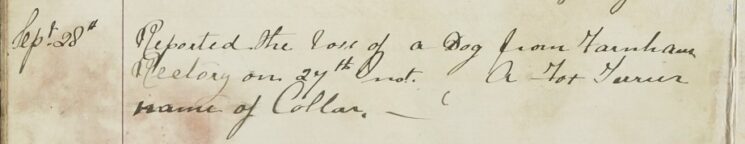 Sept 28th Reported the loss of a Dog from Farnham
Rectory on 27th inst. A Fox Terrier
name of Collar. —